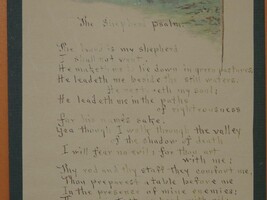 The Shepherd Psalm.
The Lord is my shepherd
shall not want.
He maketh me to lie down in green pastures
He leadeth me beside the still waters.
He restoreth my soul;
He leadeth me in the paths
of righteousness
for his name's sake.
Yea though I walk through the valley
of the shadow of death
I will fear no evil; for thou art
with me;
Thy rod and thy staff they comfort me.
Thou preparest a table before me
In the presence of mine enemies;